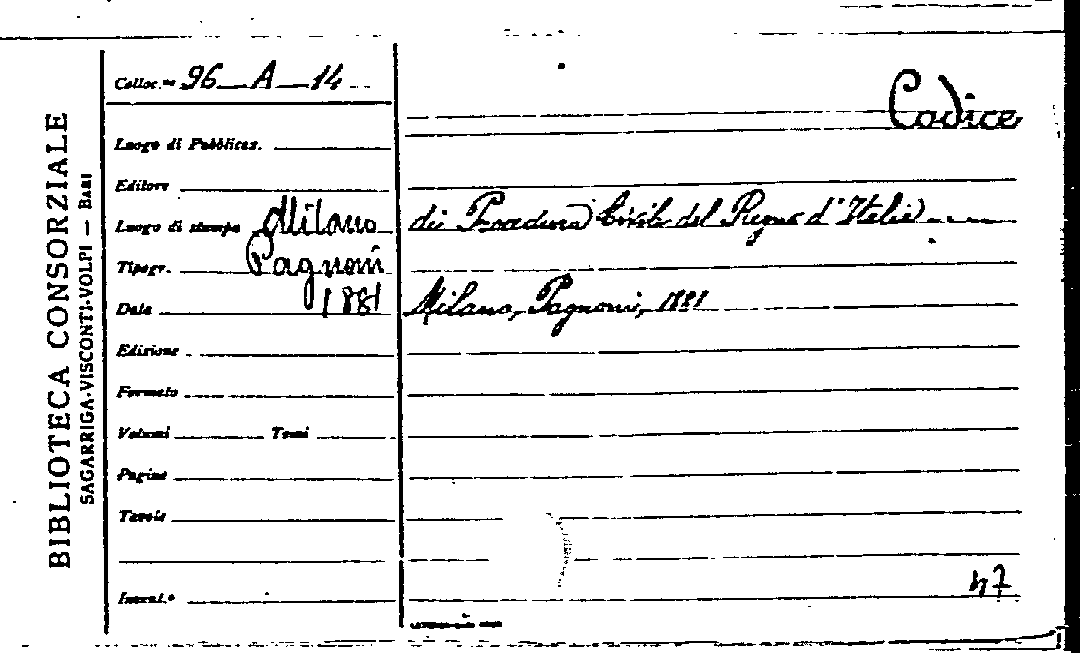 BIBLIOTECA CONSORZIALE
SAGARRIGA-VISCONTI-VOLPI — BARI
Colloc.ne 96 — A — 14
Luogo di Pubblicaz.
Editore
Luogo di stampa Milano
Tipogr. Pagnoni
Data 1881
Edizione
Formato
Volumi Tomi
Pagine
Tavole
Invent.°
Codice
di Procedura Civile del Regno d'Italia
Milano, Pagnoni, 1881
47